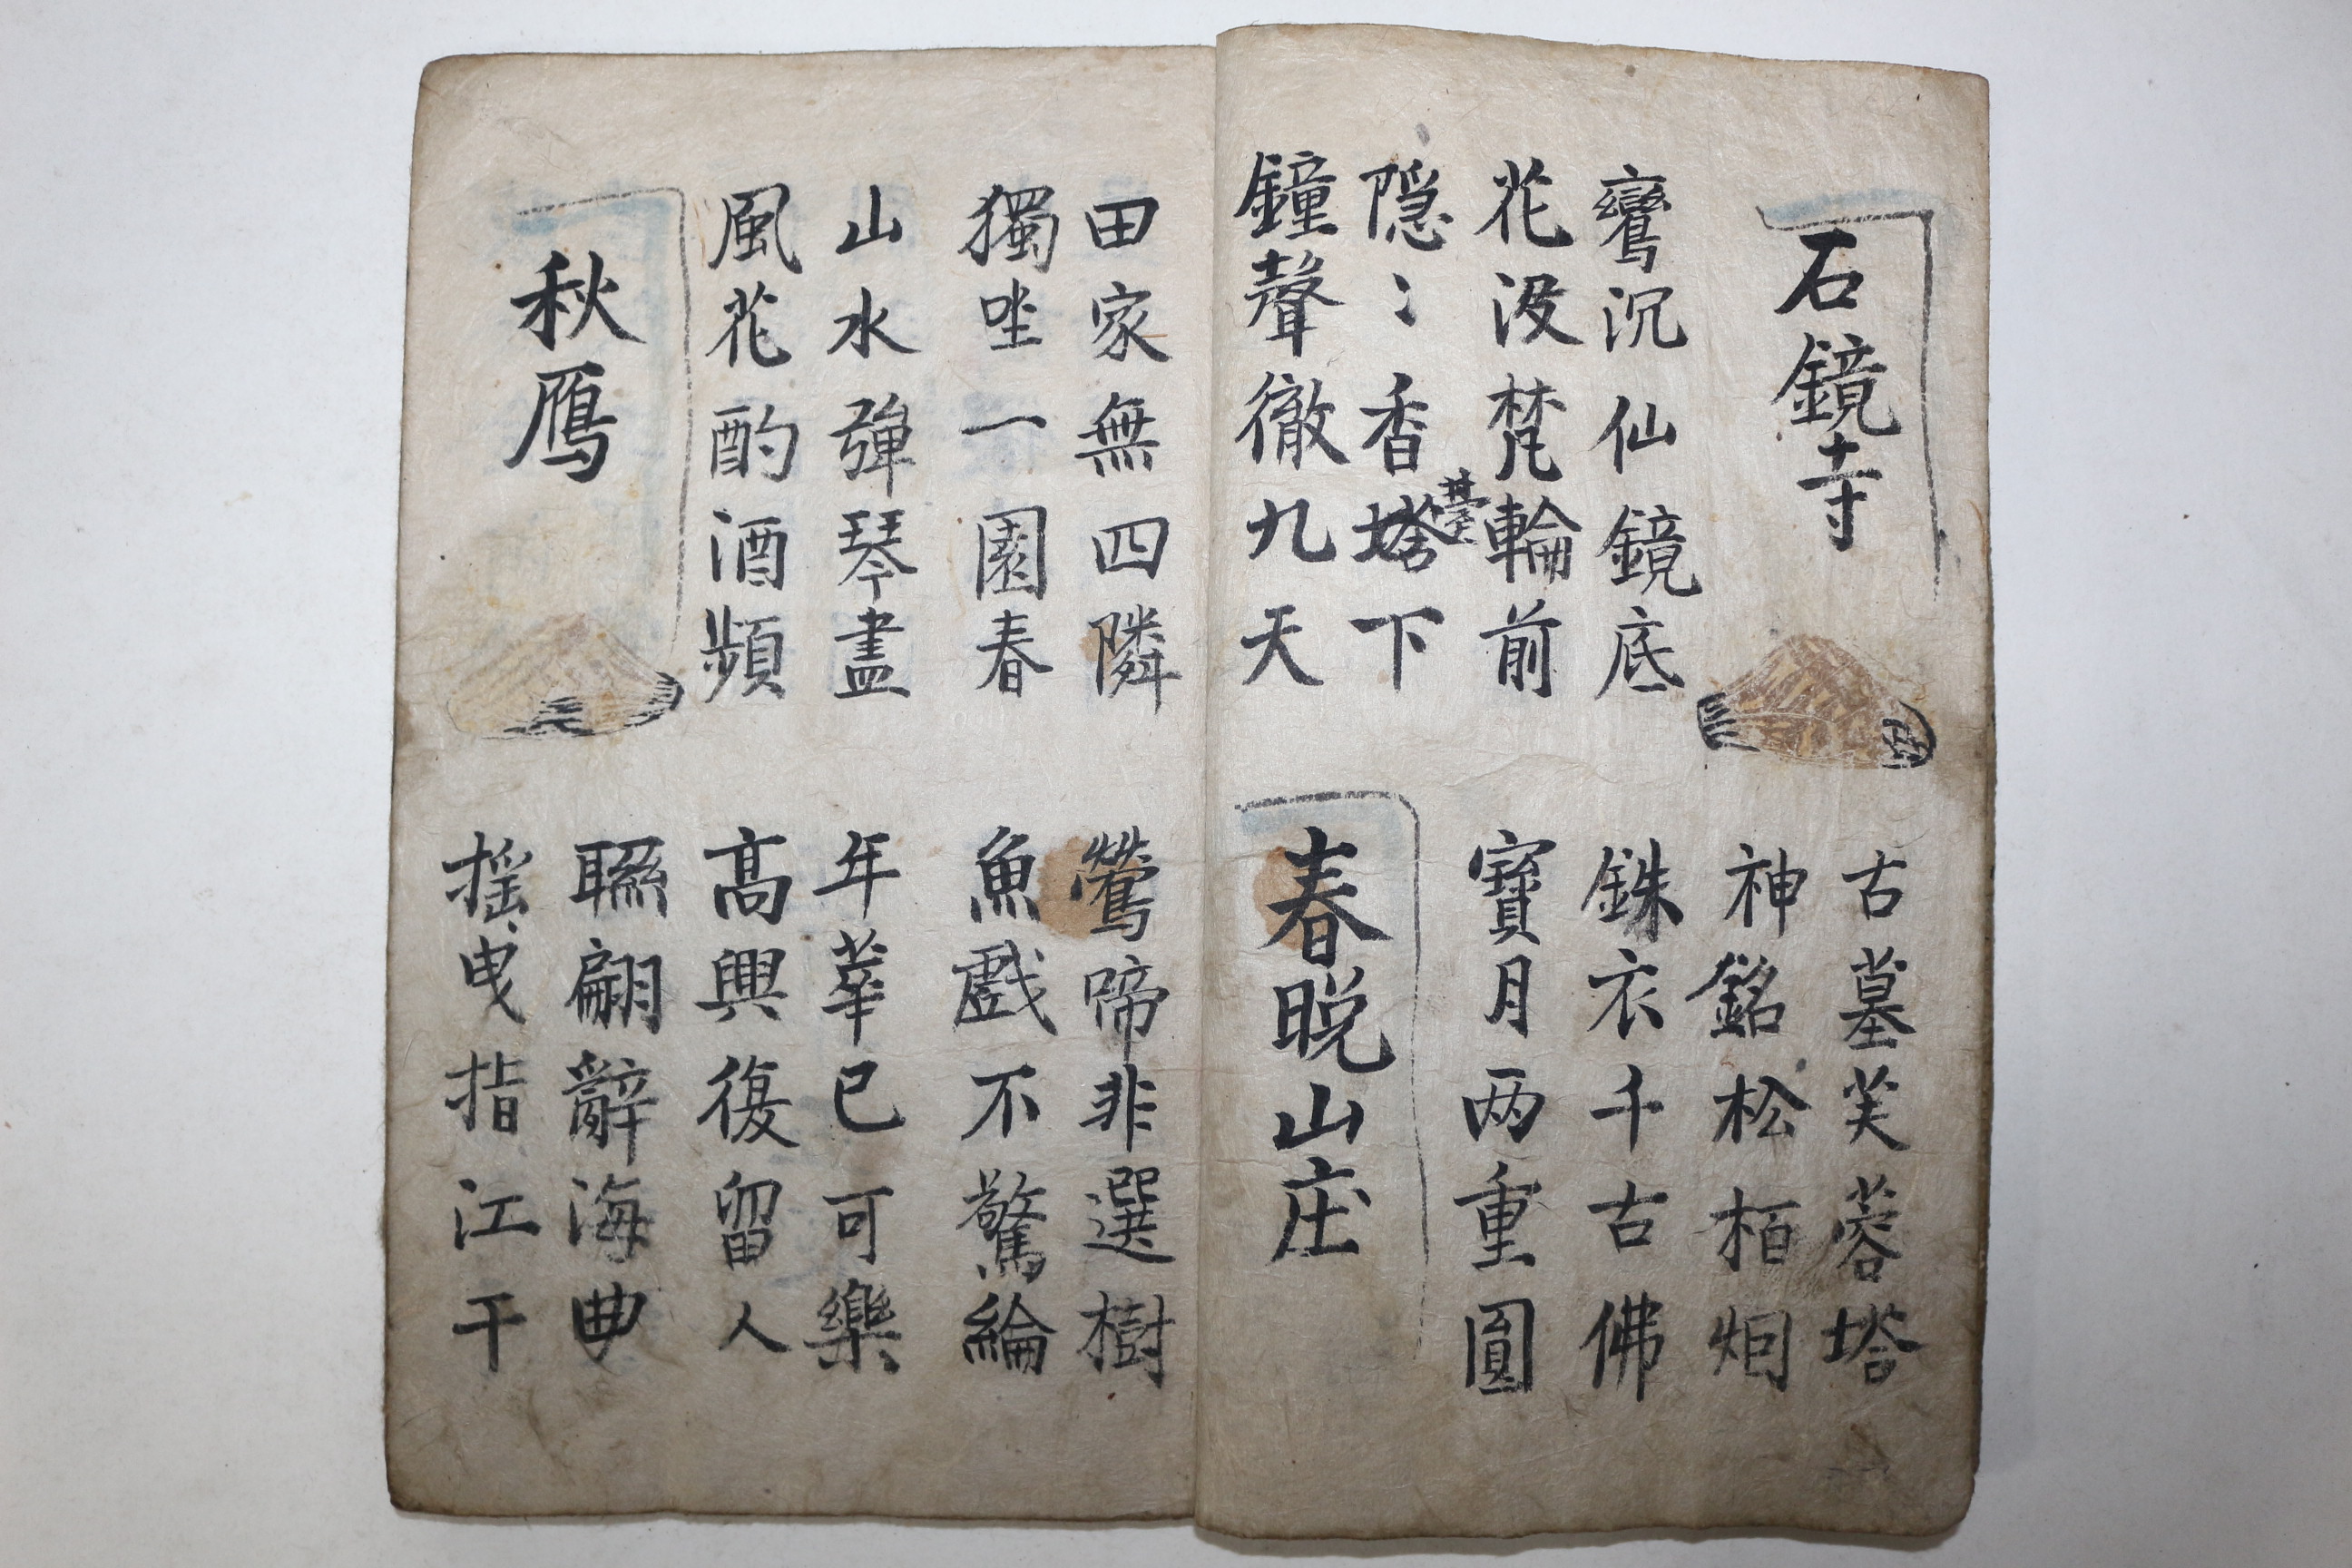 石鏡寺
古墓芙蓉塔
神銘松栢烟
鸞沉仙鏡底
花没梵輪前
銖衣千古佛
寶月两重圓
隠〻香臺下
鐘聲徹九天
春晚山庄
田家無四隣
獨坐一園春
鶯啼非選樹
魚戲不驚綸
山水彈琴盡
風花酌酒頻
年華已可樂
高興復留人
秋鴈
聯翩辭海曲
摇曳指江干